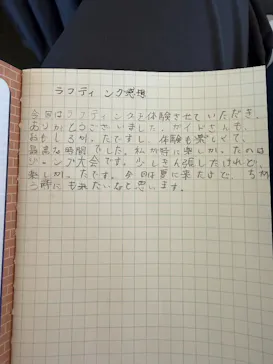 ラフティング感想
今回はラフティングを体験させていただき、
ありがとうございました。ガイドさんも、
おもしろかったですし、体験も楽しくて、
最高な時間でした。私が特に楽しかったのは
ジャンプ大会です。少しきん張したけれど、
楽しかったです。今日は夏に来たけど、ちが
う時にもみたいなと思います。